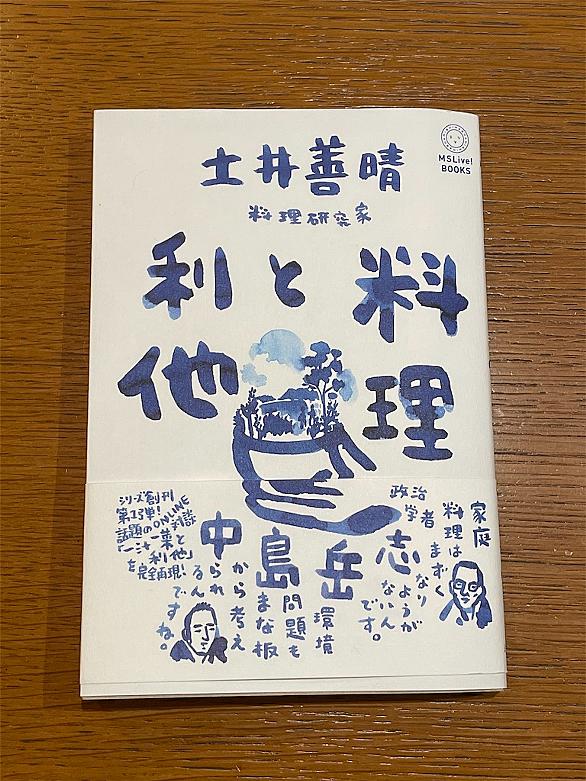 土井善晴
料理研究家
MSLive!
BOOKS
料理
と
利他
家庭
料理は
まずく
なり
ようが
ないん
です。
政治
学者
中島岳志
環境
問題も
まな板
から考え
られ
るん
ですね。
シリーズ創刊
第1弾!
話題のONLINE対談
「一汁一菜と
利他」
を完全再現!